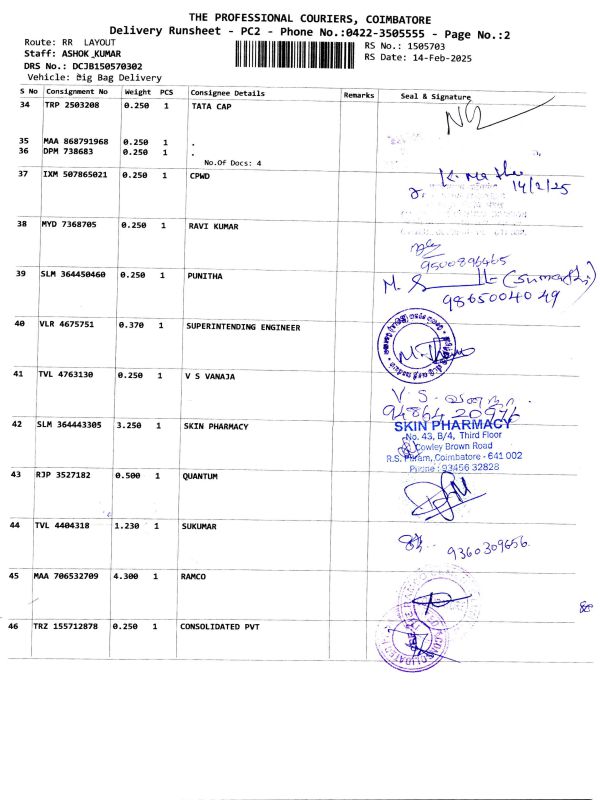 THE PROFESSIONAL COURIERS, COIMBATORE
Delivery Runsheet - PC2 - Phone No.:0422-3505555 - Page No.:2
Route: RR LAYOUT
RS No.: 1505703
Staff: ASHOK_KUMAR
RS Date: 14-Feb-2025
DRS No.: DCJB150570302
Vehicle: Big Bag Delivery
S No Consignment No Weight PCS Consignee Details Remarks Seal & Signature
34 TRP 2503208 0.250 1 TATA CAP
35 MAA 868791968 0.250 1 .
36 DPM 738683 0.250 1 .
No.Of Docs: 4
37 IXM 507865021 0.250 1 CPWD
14/2/25
38 MYD 7368705 0.250 1 RAVI KUMAR
9500896465
39 SLM 364450460 0.250 1 PUNITHA
9865004049
40 VLR 4675751 0.370 1 SUPERINTENDING ENGINEER
41 TVL 4763130 0.250 1 V S VANAJA
V. S.
94864 20976
42 SLM 364443305 3.250 1 SKIN PHARMACY
SKIN PHARMACY
No. 43, B/4, Third Floor
Cowley Brown Road
R.S. Puram, Coimbatore - 641 002
Phone : 93456 32828
43 RJP 3527182 0.500 1 QUANTUM
44 TVL 4404318 1.230 1 SUKUMAR
9360309656
45 MAA 706532709 4.300 1 RAMCO
46 TRZ 155712878 0.250 1 CONSOLIDATED PVT